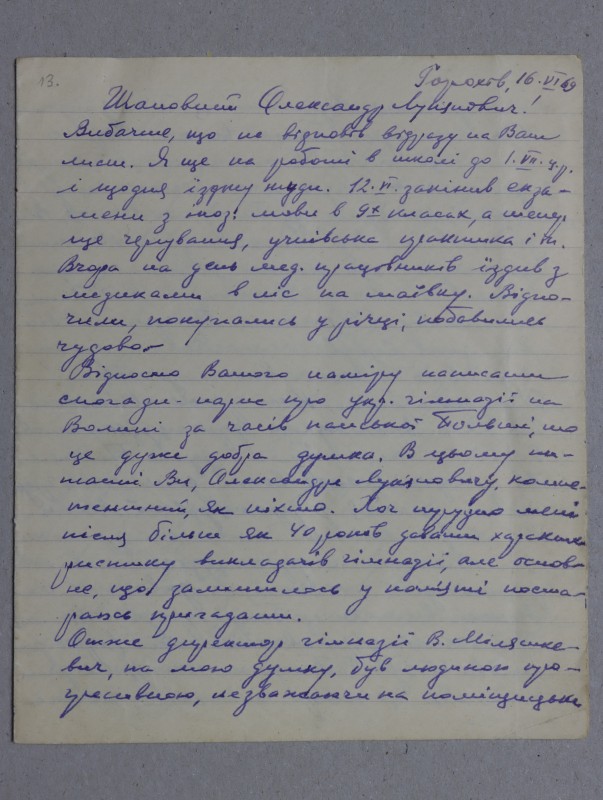 13.
Горохів, 16.VI 69
Шановний Олександр Лукянович!
Вибачте, що не відповів відразу на Ваш
лист. Я ще на роботі в школі до 1.VII. ц.р.
і щодня їзджу туди. 12.VI. закінчив екза-
мени з іноз. мови в 9х класах, а тепер
ще чергування, учнівська практика і т.
Вчора на день мед. працівників їздив з
медиками в ліс на маївку. Відпо-
чили, покупались у річці, побавились
чудово.
Відносно Вашого наміру написати
спогади - нарис про укр. гімназії на
Волині за часів панської Польщі, то
це дуже добра думка. В цьому пи-
танні Ви, Олександре Лукяновичу, компе-
тентний, як ніхто. Хоч трудно мені
після більше як 40 років давати характе
ристику викладачів гімназії, але основ-
не, що залишилось у пам'яті поста-
раюсь пригадати.
Отже директор гімназії В. Міляшке-
вич, на мою думку, був людиною про-
гресивною, незважаючи на поміщицьке